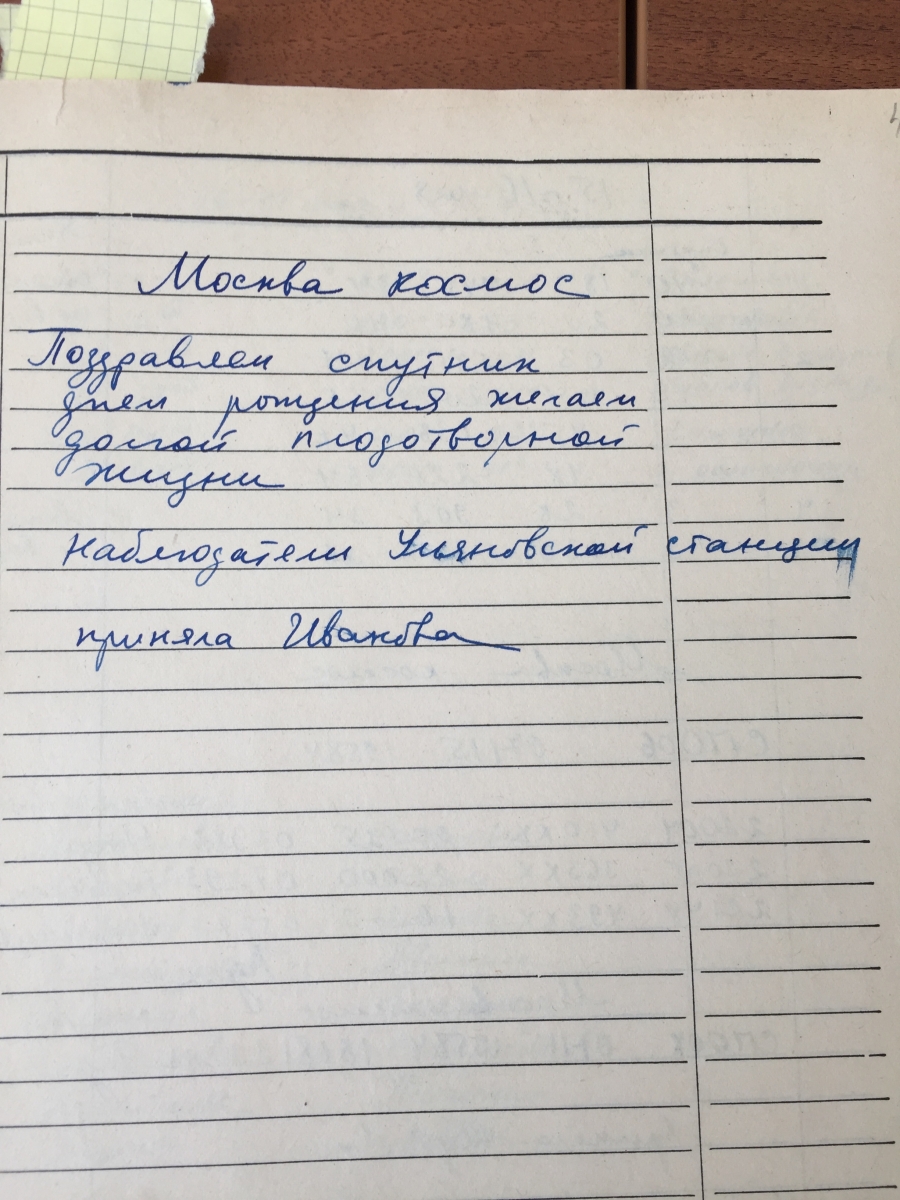 Москва космос
Поздравлем спутник
днем рождения желаем
долгой плодотворной
жизни
Наблюдатели Ульяновской станции
приняла Иванова